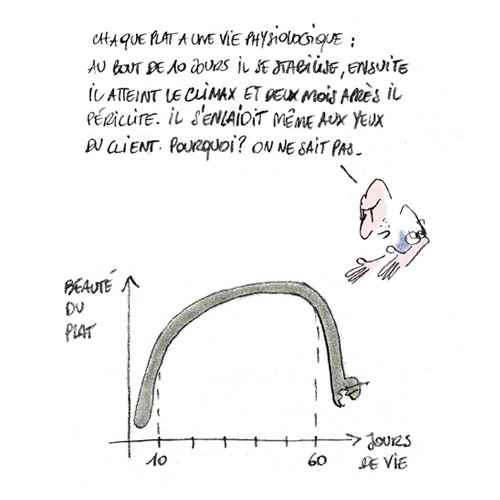 CHAQUE PLAT A UNE VIE PHYSIOLOGIQUE :
AU BOUT DE 10 JOURS IL SE STABILISE, ENSUITE
IL ATTEINT LE CLIMAX ET DEUX MOIS APRÈS IL
PÉRICLITE. IL S'ENLAIDIT MÊME AUX YEUX
DU CLIENT. POURQUOI? ON NE SAIT PAS_
BEAUTÉ
DU
PLAT
10
60
JOURS
DE VIE